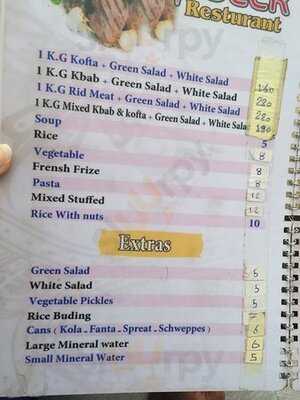 Resturant
1 K.G Kofta + Green Salad + White Salad
1 K.G Kbab + Green Salad + White Salad 220
1 K.G Rid Meat + Green Salad + White Salad 220
1 K.G Mixed Kbab & kofta + Green Salad + White Sala 190
Soup 5
Rice 8
Vegetable 8
Frensh Frize 8
Pasta 12
Mixed Stuffed 12
Rice With nuts 10
Extras
Green Salad 5
White Salad 5
Vegetable Pickles 5
Rice Buding 7
Cans ( Kola - Fanta - Spreat - Schweppes ) 6
Large Mineral water 6
Small Mineral Water 5